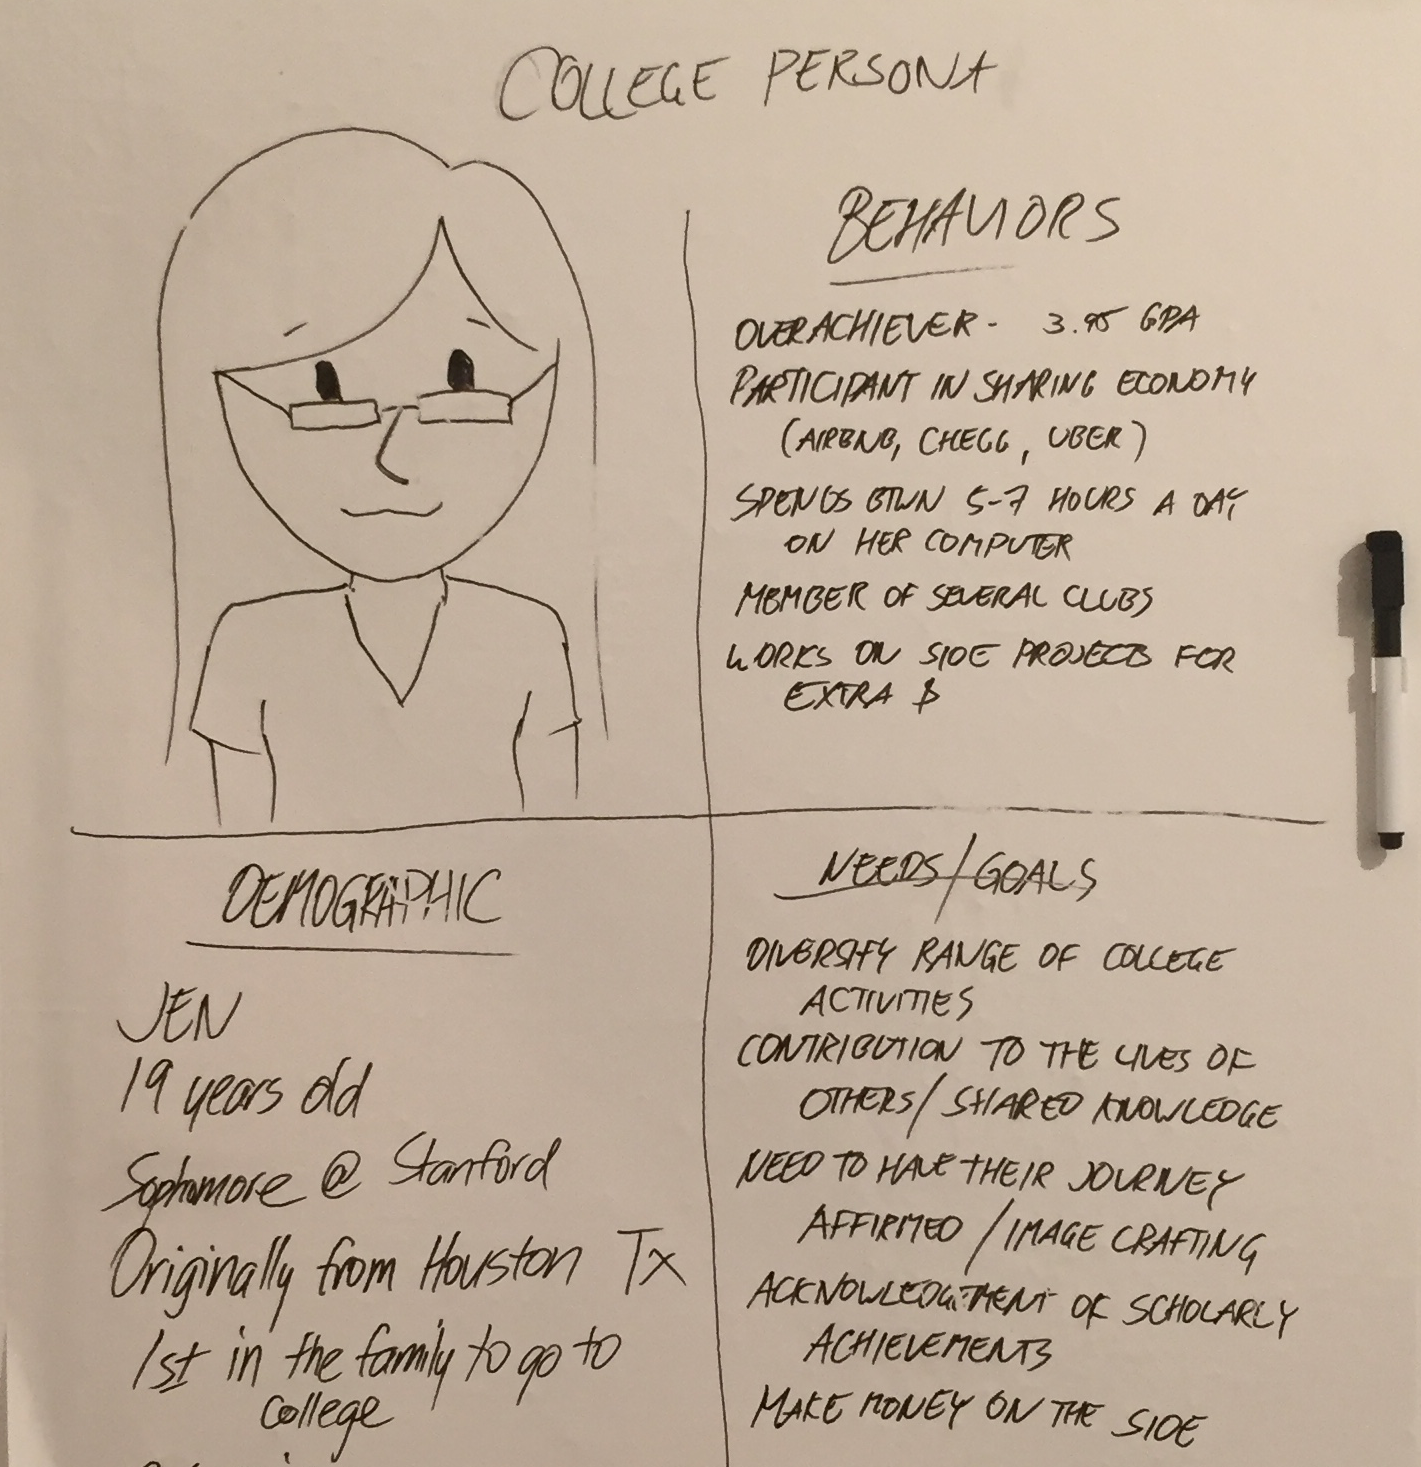 COLLEGE PERSONA
BEHAVIORS
OVERACHIEVER - 3.95 GPA
PARTICIPANT IN SHARING ECONOMY
(AIRBNB, CHEGG, UBER)
SPENDS BTWN 5-7 HOURS A DAY
ON HER COMPUTER
MEMBER OF SEVERAL CLUBS
WORKS ON SIDE PROJECTS FOR
EXTRA $
DEMOGRAPHIC
JEN
19 years old
Sophomore @ Stanford
Originally from Houston Tx
1st in the family to go to
college
NEEDS/GOALS
DIVERSIFY RANGE OF COLLEGE
ACTIVITIES
CONTRIBUTION TO THE LIVES OF
OTHERS/SHARED KNOWLEDGE
NEED TO HAVE THEIR JOURNEY
AFFIRMED/IMAGE CRAFTING
ACKNOWLEDGEMENT OF SCHOLARLY
ACHIEVEMENTS
MAKE MONEY ON THE SIDE